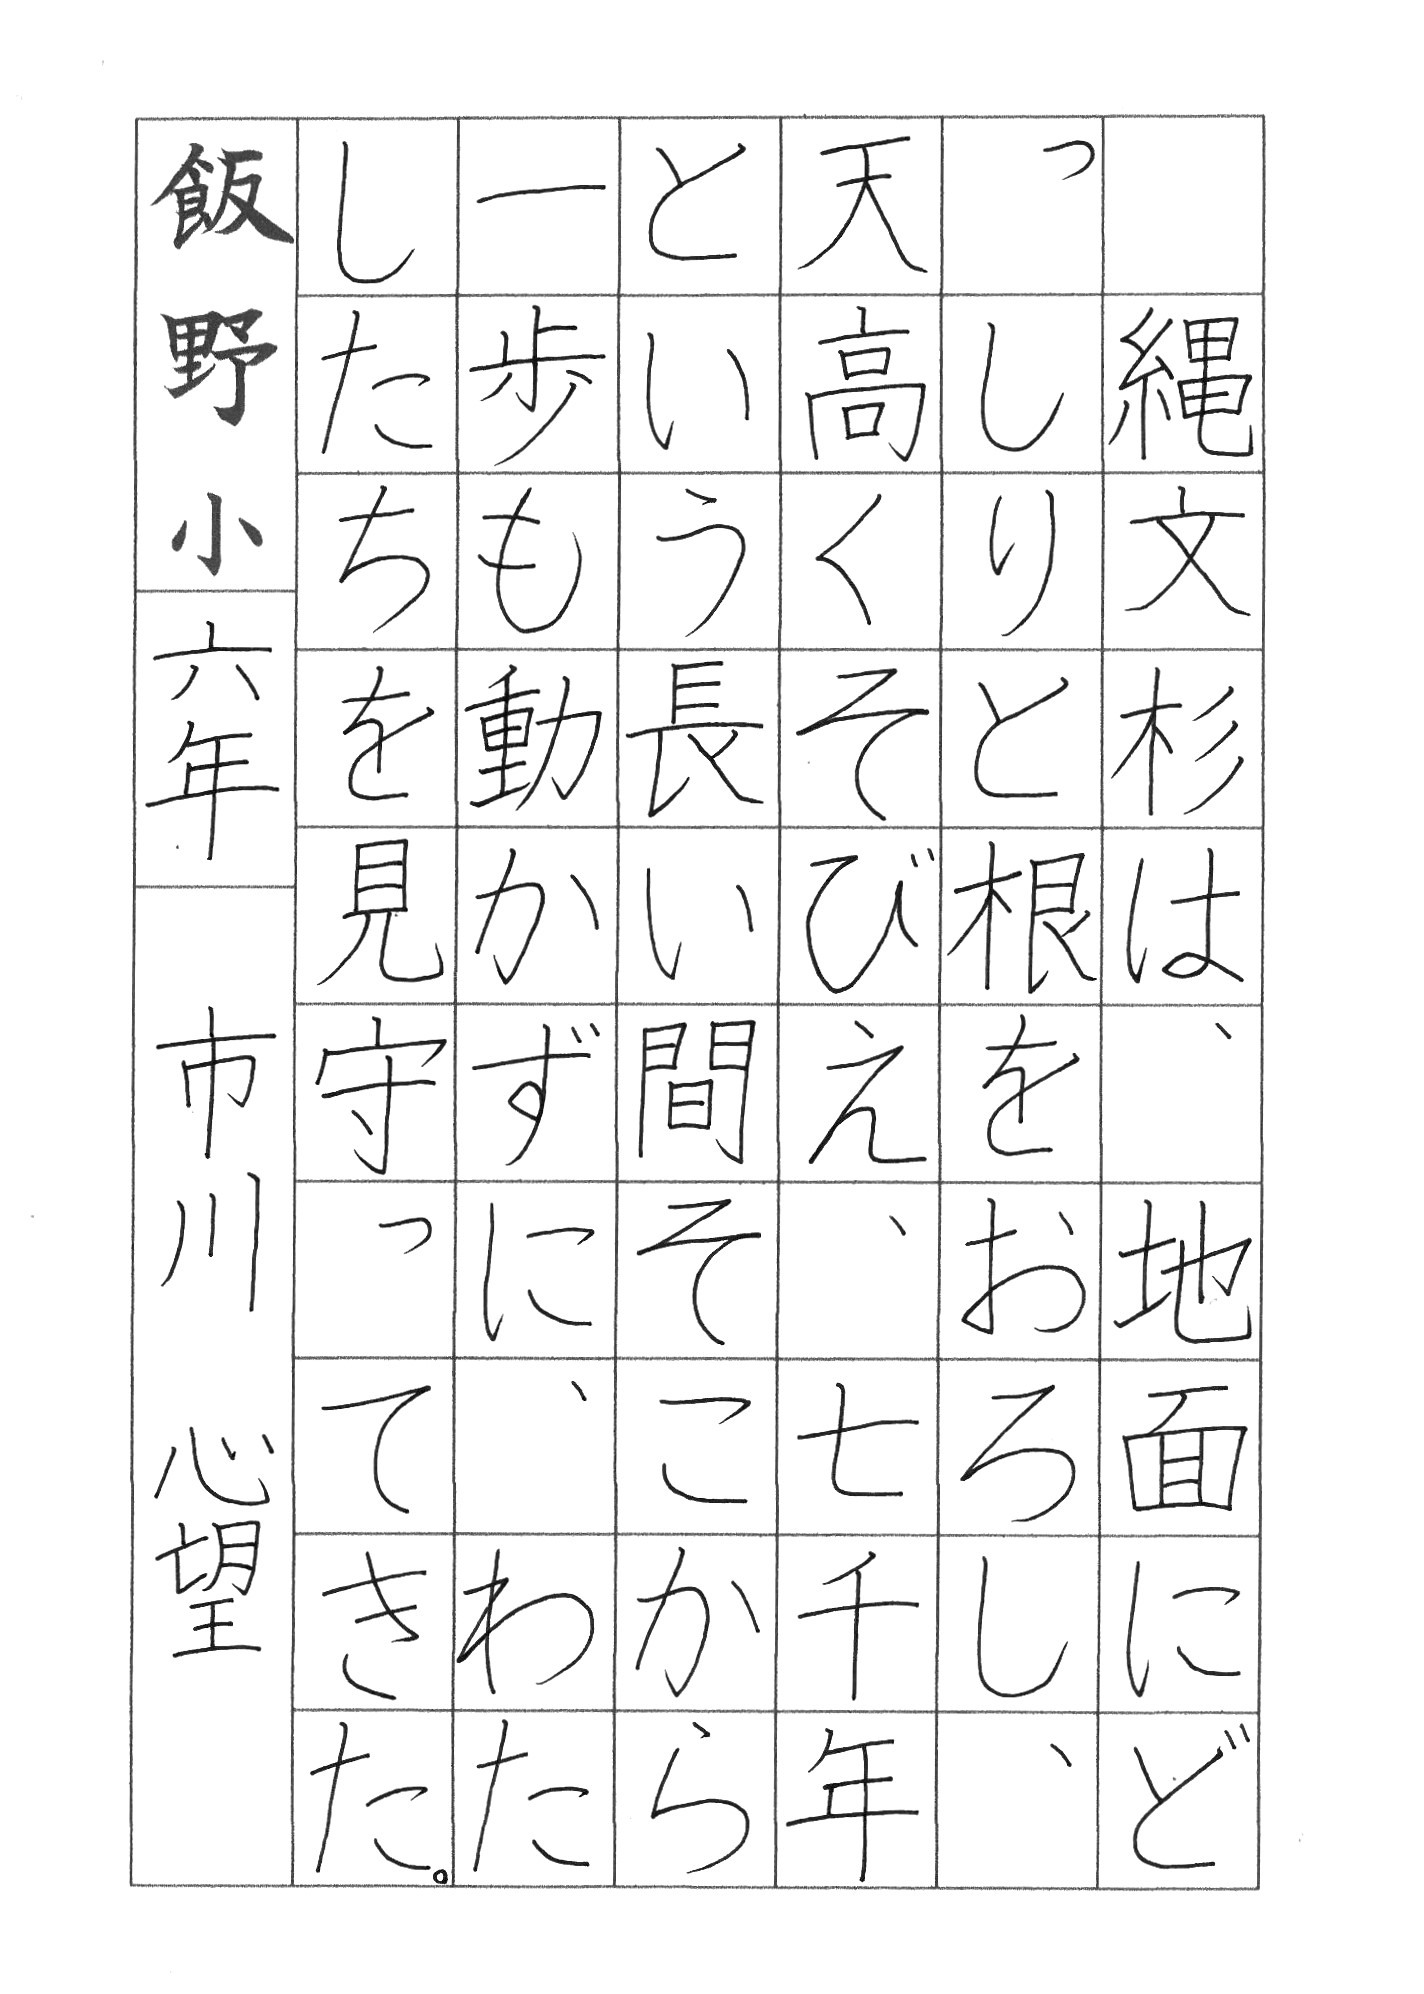 縄文杉は、地面にど
っしりと根をおろし、
天高くそびえ、七千年
という長い間そこから
一歩も動かずに、わた
したちを見守ってきた。
飯野小六年　市川　心望